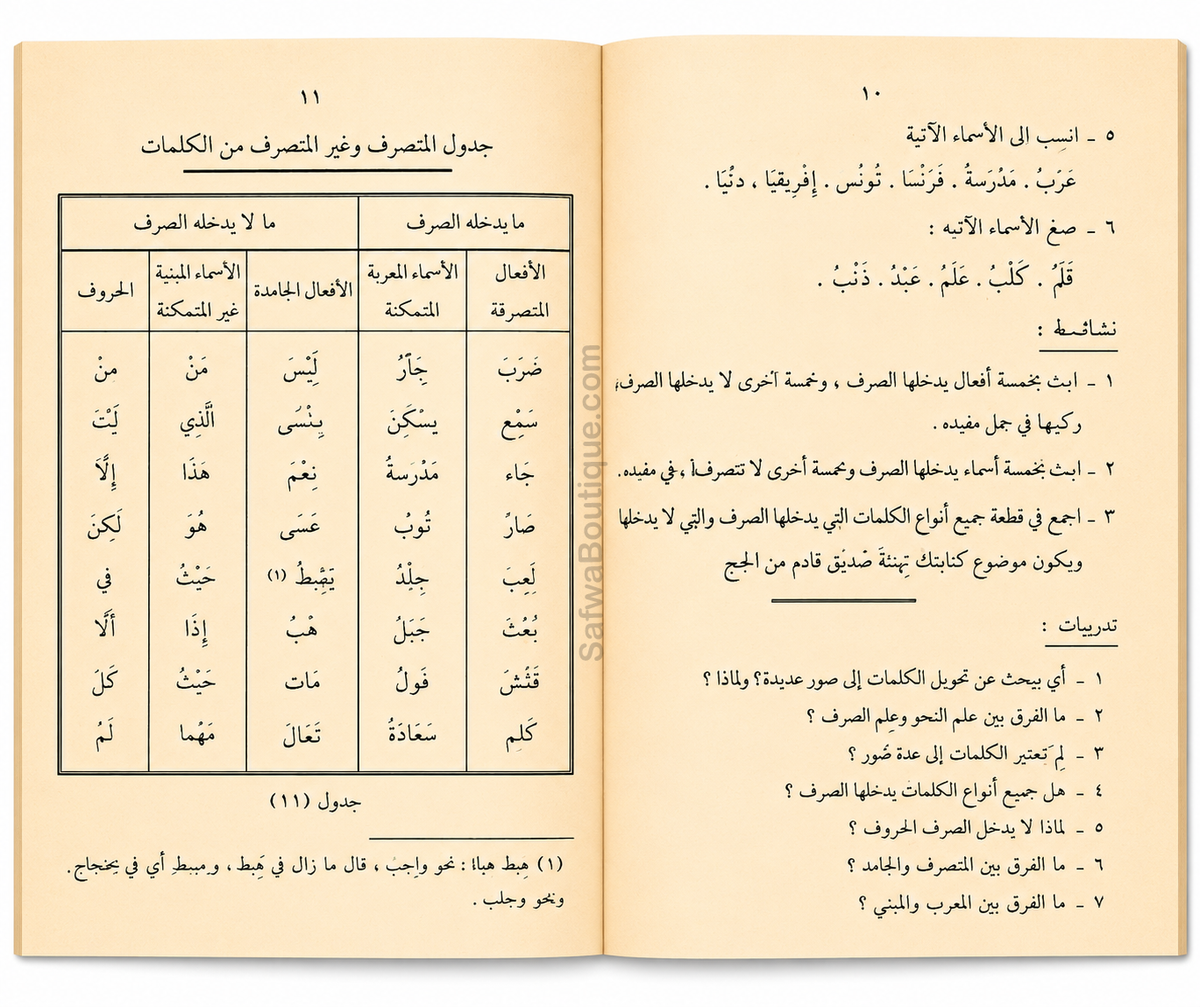 ١٠
٥ ـ انسِب الى الأسماء الآتية
عَرَبُ . مَدُرَسةُ . فَرَنْسَا . تُونُس . إِفْرِيقيَا ، دنُيَا .
٦ ـ صغ الأسماء الآتيه :
قَلَمُ . كَلْبُ . عَلَمُ . عَبْدُ . ذَنْبُ .
١ ـ ابث بخمسة أفعال يدخلها الصرف ، وخمسة آخرى لا يدخلها الصرف،
ركيها في جمل مفيده .
٢ ـ ابث بخمسة أسماء يدخلها الصرف وخمسة أخرى لا تتصرف ، في مفيده.
٣ ـ اجمع في قطعة جميع أنواع الكلمات التي يدخلها الصرف والتي لا يدخلها
ويكون موضوع كتابتك تهنئةَ صديَق قادم من الحج
تدريبات :
١ ـ أي بيحث عن تحويل الكلمات إلى صور عديدة؟ ولماذا ؟
٢ ـ ما الفرق بين علم النحو وعلم الصرف ؟
٣ ـ لِم تعتير الكلمات إلى عدة صُور ؟
٤ ـ هل جميع أنواع الكلمات يدخلها الصرف ؟
٥ ـ لماذا لا يدخل الصرف الحروف ؟
٦ ـ ما الفرق بين المتصرف والجامد ؟
٧ ـ ما الفرق بين المعرب والمبني ؟
١١
جدول المتصرف وغير المتصرف من الكلمات
ما يدخله الصرف ما لا يدخله الصرف
الأفعال المتصرقة الأسماء المعربة المتمكنة الأفعال الجامدة الأسماء المبنية غير المتمكنة الحروف
ضَرَبَ جَارُ لَيْسَ مَنْ منْ
سَمْع يسْكَنَ يِنْسُى الَّذِي لَيْتَ
جَاء مَدْرَسةُ نِعْمَ هَذَا إِلَّا
صَارُ تُوبُ عَسَى هُوَ لَكِنَ
لَعِبَ جِلْدُ (١) حَيْثُ في
بُعُثَ جَبَلُ هْبُ إِذَا أَلَّا
قَثُشَ فَولُ مَات حَيْثُ كَلَ
كَلِم سَعَادَةُ تَعَالَ مَهْما لَمُ
جدول (١١)
(١) هِبط هباء : نحو واجب ، قال ما زال في هَبط ، و أي في .
ونحو وجلب .
SafwaBoutique.com